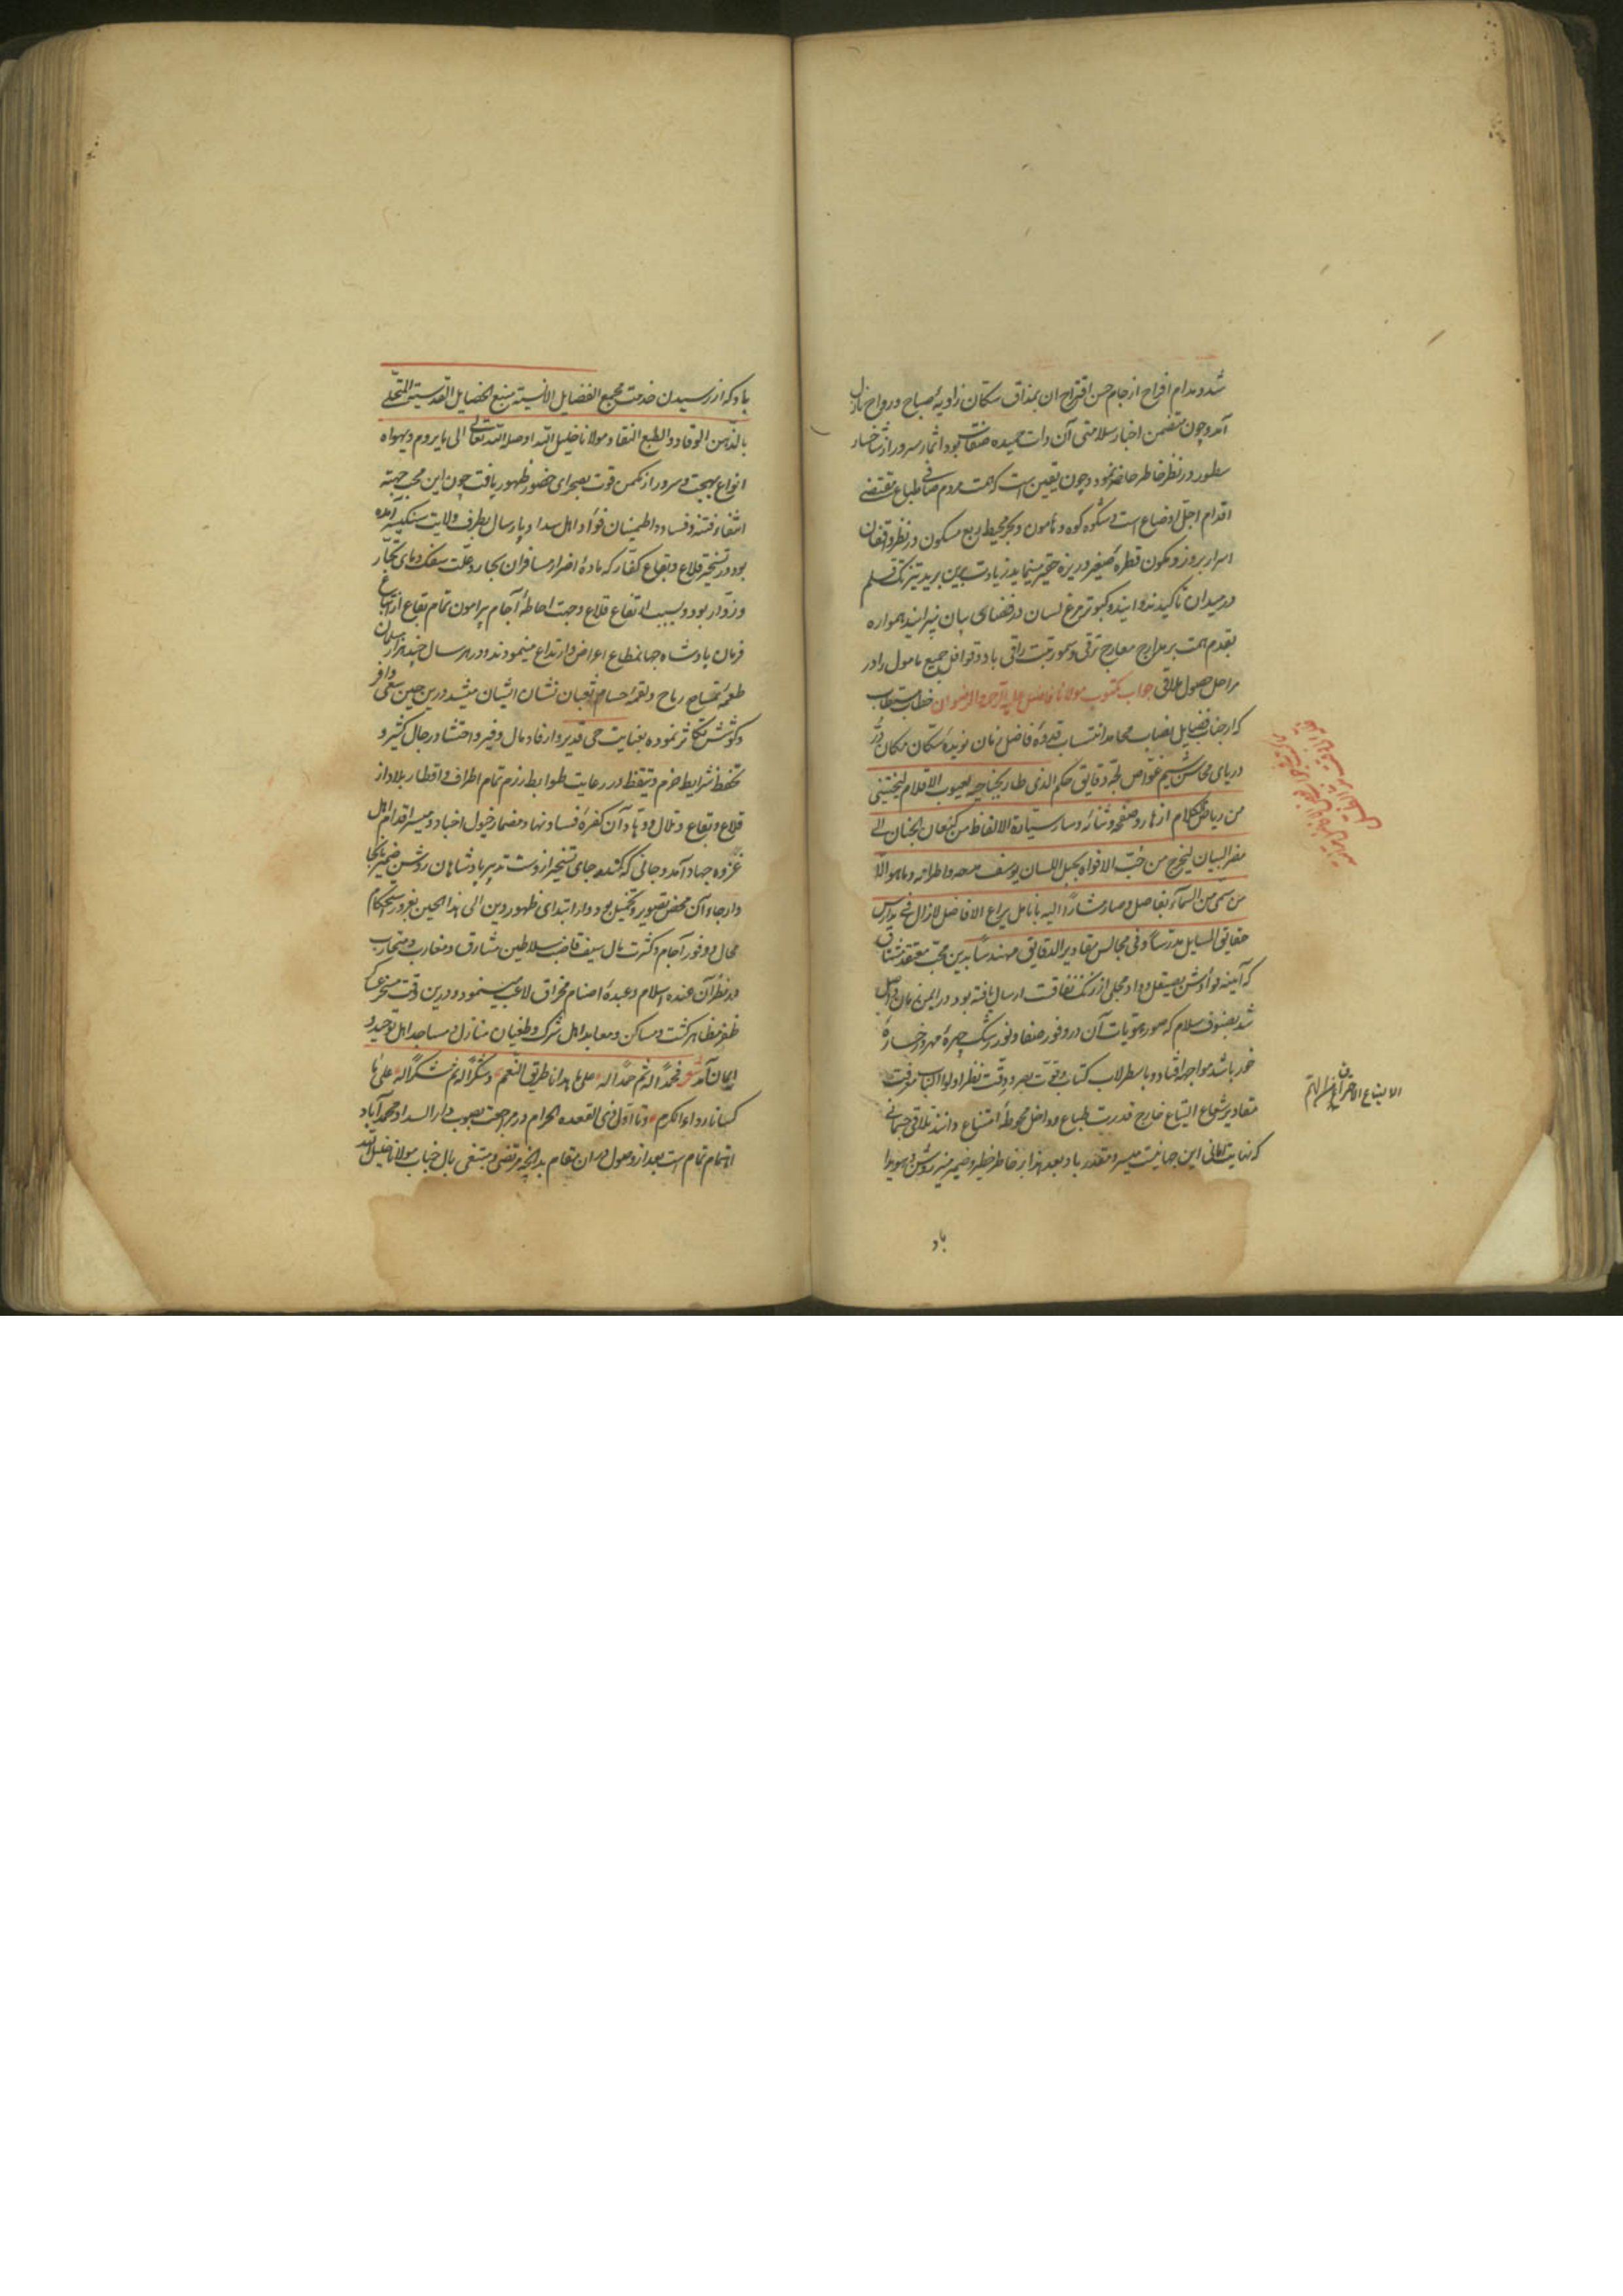 شد و مدام افراح از جام حسن اقتراح ان بمذاق سکان زاویهٔ صباح و رواح نازل
آمد و چون متضمن اخبار سلامتی آن ذات حمیده صفات بود اثمار سرور از شاخسار
سطور در نظر خاطر حاضر نمود و چون یقین است که همت مردم صافی طباع مقتضی
اقدام اجل اوضاع است و شکوه کوه و هامون و بحر محیط و ربع مسکون در نظر واقفان
اسرار بروز و کمون قطرهٔ صغیر و ریزه حقیر مینماید زیادت برین برید تیزتک قلم
در میدان تاکید ندوانید و کبوتر مرغ لسان در فضای بیان نپرانید همواره
بقدم همت بر مدارج معارج ترقی و سمو رتبت راقی باد و قوافل جمیع مامول را در
مراحل حصول ملاقی جواب مکتوب مولانا فاضل علیه الرحمة و الرضوان خطاب مستطاب
که از جناب فضایل نصاب محامد انتساب قدوهٔ افاضل زمان نوبدهٔ سکان مکان در
دریای محاسن شیم غواص لجهٔ دقایق حکم الذی طار بجناحیه یعسوب الاقلام لیجتنی
من ریاض الکلام ازهار وصفه و ثنائه و سار سیارة الالفاظ من کنعان الجنان الی
مصر البیان لیخرج من جب الافواه بحبل اللسان یوسف مدحه و اطرائه و ما هو الا
من سمی من السماء بفاضل و صار مشارا الیه بانامل یراع الافاضل لازال فی مدارس
حقایق المسایل مدرسا و فی مجالس مقادیر الدقایق مهندسا بدین محب معتقد مشتاق
که آیینه فوادش بصیقل وداد مجلی از زنک نفاقت ارسال یافته بود در ایمن زمان واصل
شد بصنوف سلام که صور هویات آن در وفور صفا و نور رشک چهرهٔ مهر و رخسارهٔ
خور باشد مواجهه افتاد و باسطرلاب کتاب و قوت بصر و دقت نظر اولوا الالباب معرفت
مقادیر شعاع التیاع خارج قدرت طباع و داخل محوطهٔ امتناع دانند تلاقی جسمانی
که نهایت امانی این جانیست میسر و مقدر باد بعد هذا بر خاطر خطیر و ضمیر منیر روشن و هویدا
باد
الالتیاع الاحتراق من الهم
باد که از رسیدن خدمت مجمع الفضایل الانسیة منبع الخصایل القدسیة المتحلی
بالذهن الوقاد و الطبع النقاد مولانا خلیل الله اوصله الله تعالی الی ما یروم و یهواه
انواع بهجت و سرور از مکمن قوت بصحرای حضور ظهور یافت چون این محب جهة
انتفاء فتنه و فساد و اطمینان فواد اهل سداد پارسال بطرف ولایت سنکیسر آمده
بود در تسخیر قلاع و بقاع کفار که مادهٔ اضرار مسافران بحار و علت سفک دمای تجار
و زوار بود و بسبب ارتفاع قلاع و جهت احاطهٔ آجام پیرامون تمام بقاع از اتباع
فرمان پادشاه جهانمطاع اعراض و ارتداع مینمودند و در هر سال چند هزار مسلمان
طعمهٔ تمساح رماح و لقمهٔ حسام ثعبان نشان ایشان میشد درین حین سعی وافر
و کوشش متکاثر نموده بعنایت حی قدیر و ارفاد مال وفیر و احتشاد رجال کثیر و
تحفظ شرایط حزم و تیقظ در رعایت ضوابط رزم تمام اطراف و اقطار بلاد از
قلاع و بقاع و تلال و وهاد آن کفرهٔ فساد نهاد مضمار خیول اخیاد و میسر اقدام اهل
غزو و جهاد آمد و جائی که کمند جای تسخیر از دست تدبیر پادشاهان روشن ضمیر بانجا
دار جاء آن محض تصویر و تخییل بود و از ابتدای ظهور دین الی هذا الحین بغرور استحکام
محال و وفور آجام و کثرت مال سیف قاضب سلاطین مشارق و مغارب و متحارب
در نظر آن عنده اسلام و عبدهٔ اصنام مخراق لاعب مینمود و درین وقت مسخر عساکر
ظفر مظاهر کشت و مساکن و معابد اهل شرک و طغیان منازل و مساجد اهل توحید و
ایمان آمد شعر فحمدا له ثم حمدا له علی ما هدانا طریق النعم و شکرا له ثم شکرا له علی ما
کسانا رداء الکرم و تا اول ذی القعده الحرام در مراجعت بصوب دار السداد محمد آباد
اهتمام تمام است بعد از وصول دران مقام بدانچه مرتضی و مبتغی بال جناب مولانا خلیل الله